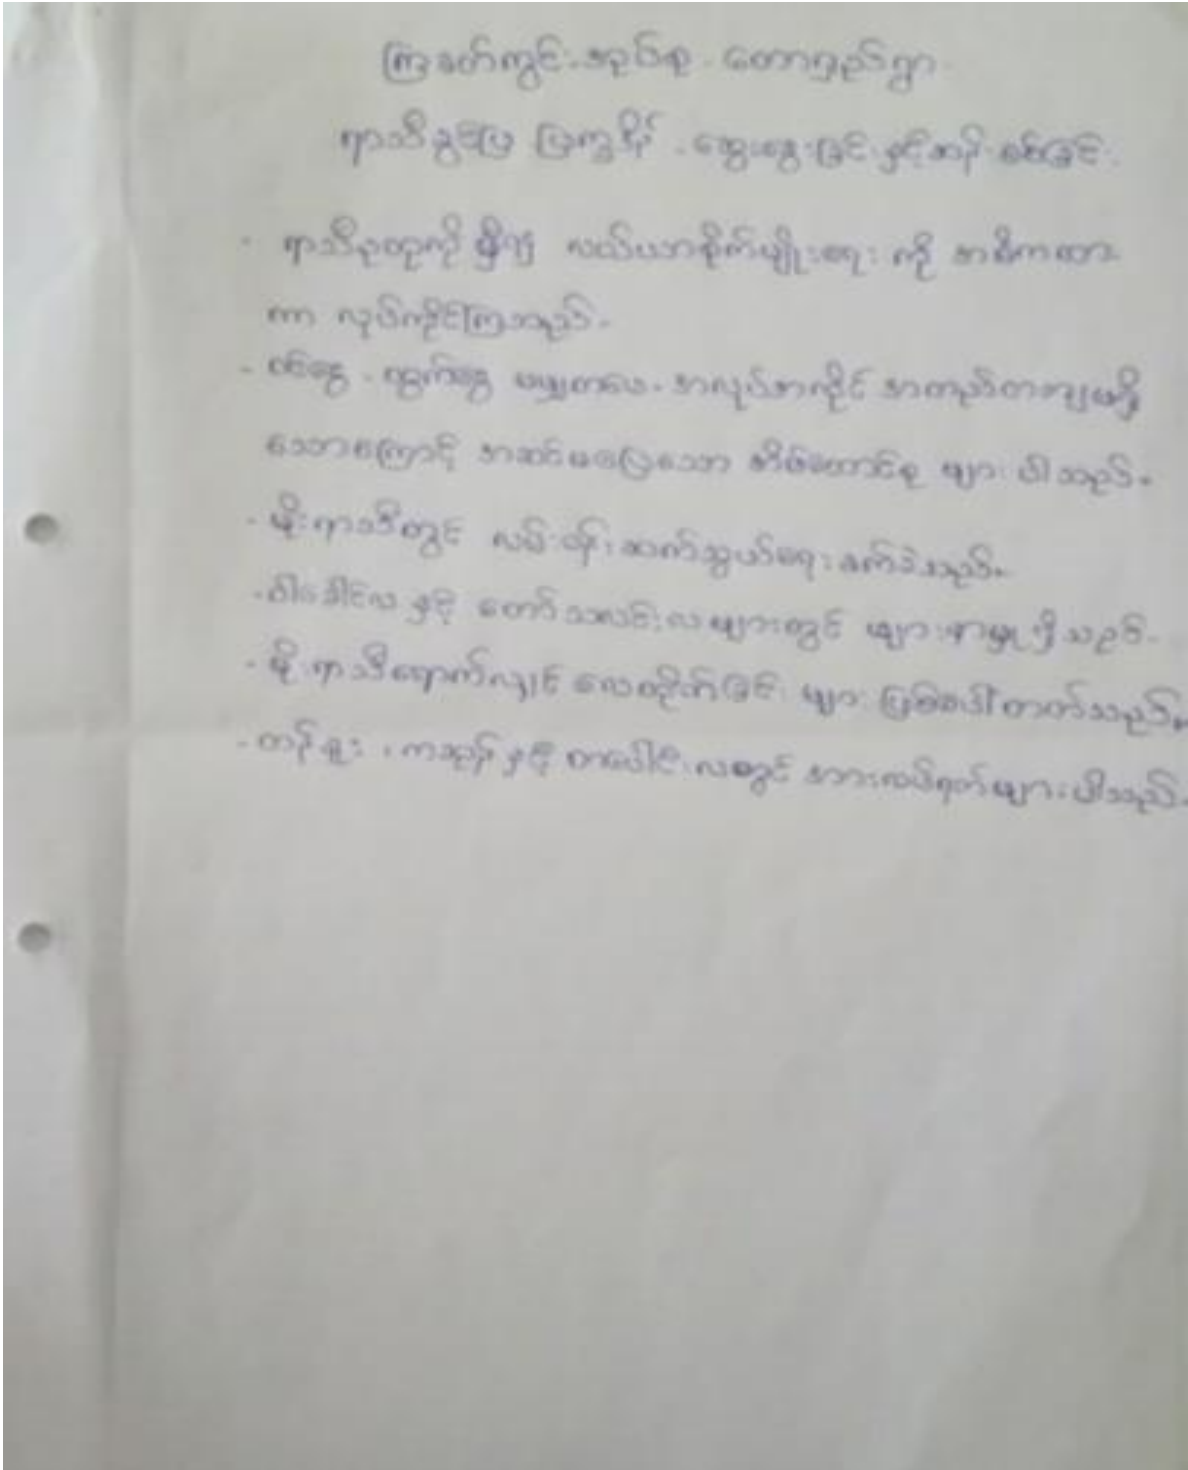 ကြခတ်ကွင်းအုပ်စု - တောရှည်ရွာ
ရာသီခွင်ပြ ပြက္ခဒိန် - ဆွေးနွေးခြင်းနှင့်ဆန်းစစ်ခြင်း
- ရာသီဥတုကို မှီ၍ လယ်ယာစိုက်မျိုးရေး ကို အဓိကထား
ကာ လုပ်ကိုင်ကြသည်။
- ဝင်ငွေ - ထွက်ငွေ မမျှတပေ။ အလုပ်အကိုင် အတည်တကျမရှိ
သောကြောင့် အဆင်မပြေသော အိမ်ထောင်စု များ ပါသည်။
- မိုးရာသီတွင် လမ်းပန်းဆက်သွယ်ရေး ခက်ခဲသည်။
- ဝါခေါင်လ နှင့် တော်သလင်းလများတွင် ဖျားနာမှု ရှိသည်။
- မိုးရာသီရောက်လျှင် လေတိုက်ခြင်း များ ဖြစ်ပေါ်တတ်သည်။
- တန်ခူး ၊ ကဆုန်နှင့် တပေါင်းလတွင် အားလပ်ရက်များပါသည်။